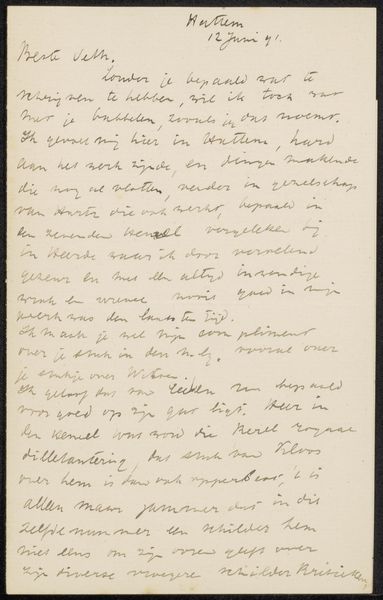 Hattem
12 Juni 91.
Beste Veth.
Zonder je bepaald wat te
schrijven te hebben, wil ik toch wat
met je babbelen, zooals jij dat noemt.
Ik gevoel mij hier in Hattem, hard
aan het werk zijnde, en dingen makende
die nog al vlotten, verder in gezelschap
van Hart die ook werkt, bepaald in
een zevenden hemel vergeleken bij
in Heerde waar ik door vervelend
gezeur en met een altijd inwendige
wrok en wrevel nooit goed in mijn
werk was den laatsten tijd.
Ik maak je wel mijn compliment
over je stuk in den N.G. vooral over
je stukje over Witsen.
Ik geloof dat van bepaald
voor goed op zijn gat ligt. Heer in
den hemel wat word die kerel
dilletanterig, dat stuk van Kloos
over hem is dan ook opperbest, 't is
alleen maar jammer dat in dit
zelfde nummer een schilder hem
niet eens om zijn ooren geeft over
zijn diverse vroegere schilderkritieken